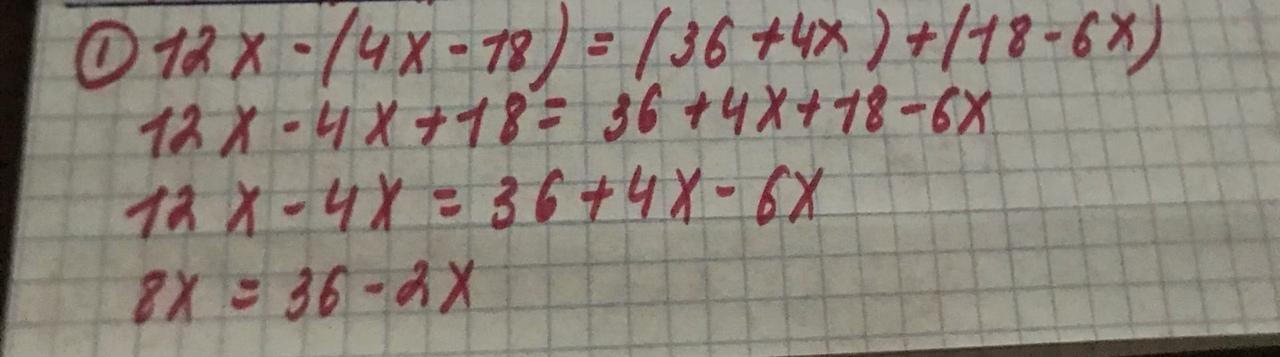 ① 12x - (4x - 18) = (36 + 4x) + (18 - 6x)
12x - 4x + 18 = 36 + 4x + 18 - 6x
12x - 4x = 36 + 4x - 6x
8x = 36 - 2x